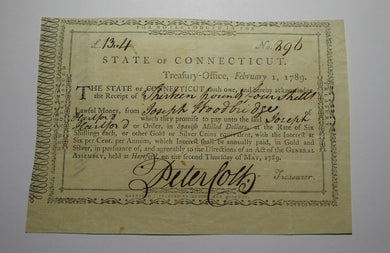 £ 13.4 No. 896
STATE OF CONNECTICUT.
Treasury-Office, February 1, 1789.
THE STATE OF CONNECTICUT doth owe, and hereby acknowledge
the Receipt of Thirteen pounds four Shills
Lawful Money, from Joseph Woodbridge
Hartford which they promise to pay unto the said Joseph
Hartford or Order, in Spanish Milled Dollars, at the Rate of Six
Shillings each, or other Gold or Silver Coins equivalent, with the Interest at
Six per Cent. per Annum, which Interest shall be annually paid, in Gold and
Silver, in pursuance of, and agreeably to the Directions of an Act of the GENERAL
ASSEMBLY, held at Hartford, on the second Thursday of May, 1789.
Peter Colt Treasurer.